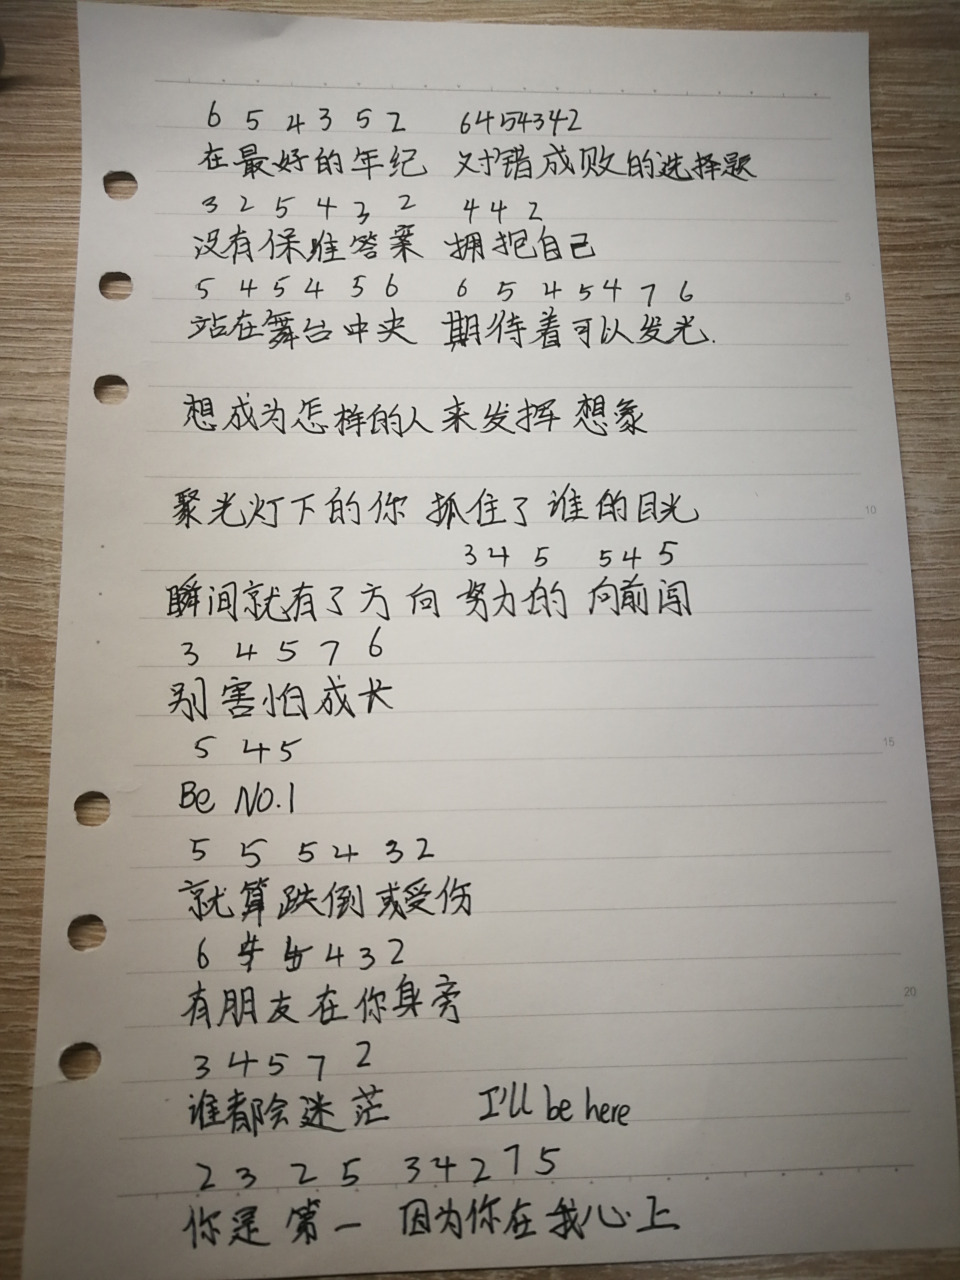 6 5 4 3 5 2 6454342
在最好的年纪 对错成败的选择题
3 2 5 4 3 2 4 4 2
没有保准答案 拥抱自己
5 4 5 4 5 6 6 5 4 5 4 7 6
站在舞台中央 期待着可以发光.
5
想成为怎样的人来发挥想象
聚光灯下的你 抓住了谁的目光
10
3 4 5 5 4 5
瞬间就有了方向 努力的 向前闯
3 4 5 7 6
别害怕成长
5 4 5
15
Be NO.1
5 5 5 4 3 2
就算跌倒或受伤
6 4 3 2
有朋友在你身旁
20
3 4 5 7 2
谁都会迷茫 I'll be here
2 3 2 5 3 4 2 7 5
你是第一 因为你在我心上